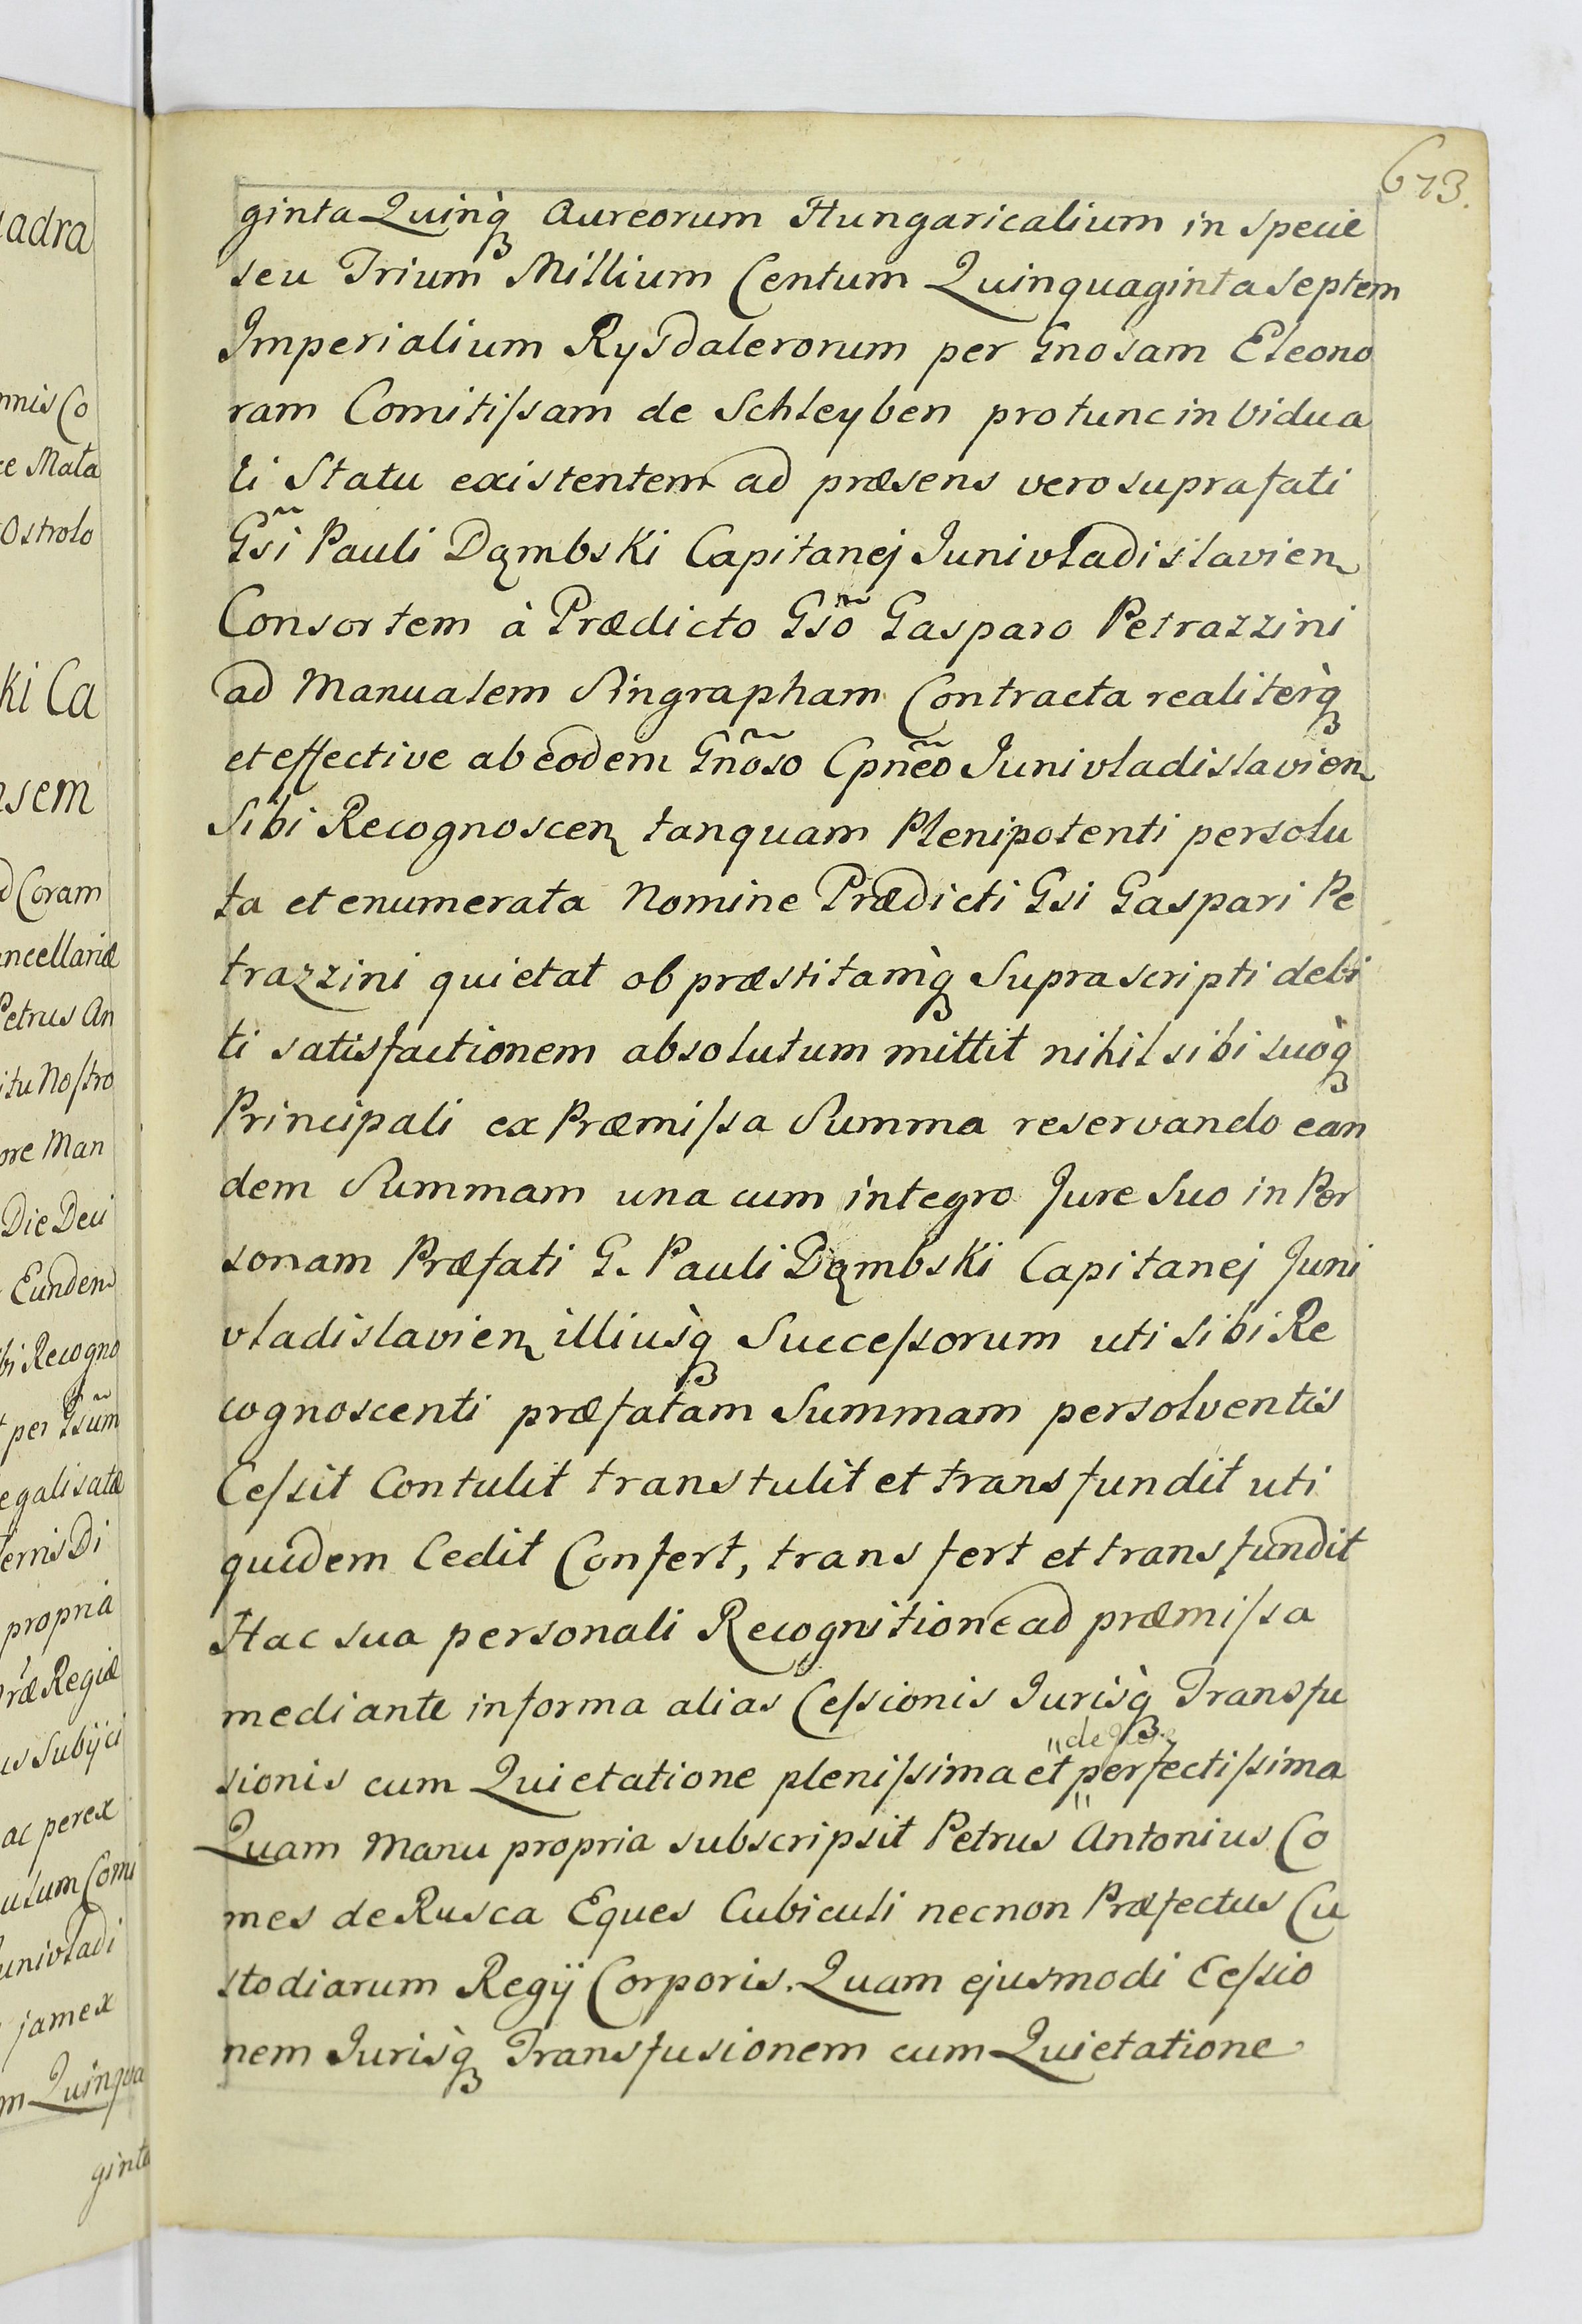 673.
ginta Quinq̀ꝫ Aureorum Hungaricalium in specie
seu Trium Millium Centum Quinquaginta septem
Imperialium Rysdalerorum per Gnosam Eleono
ram Comitiſsam de Schleyben protunc in Vidua
li Statu existentem ad præsens vero suprafati
Gs̃i Pauli Dąmbski Capitanej Junivladislavien
Consortem à Prædicto Gsõ Gasparo Petrazzini
ad Manualem Singrapham Contracta realiterq̀ꝫ
et effective ab eodem Gñoso Cpñeo Junivladislavien
Sibi Recognoscen tanquam Plenipotenti persolu
ta et enumerata Nomine Prædicti Gsi Gaspari Pe
trazzini quietat ob præstitamq̀ꝫ Suprascripti debi
ti satisfactionem absolutum mittit nihil sibi suoq̀ꝫ
Principali ex Præmiſsa Summa reservando ean
dem Summam una cum integro Jure Suo in Per
sonam Præfati G. Pauli Dąmbski Capitanej Juni
vladislavien illiusq̀ꝫ Succeſsorum uti sibi Re
cognoscenti præfatam Summam persolventis
Ceſsit Contulit transtulit et transfundit uti
quidem Cedit Confert, transfert et transfundit
Hac sua personali Recognitione ad præmiſsa
mediante in forma alias Ceſsionis Jurisq̀ꝫ Transfu
sionis cum Quietatione pleniſsima et perfectiſsima
Quam Manu propria subscripsit Petrus Antonius Co
mes de Rusca Eques Cubiculi necnon Præfectus Cu
stodiarum Regij Corporis. Quam ejusmodi Ceſsio
nem Jurisq̀ꝫ Transfusionem cum Quietatione